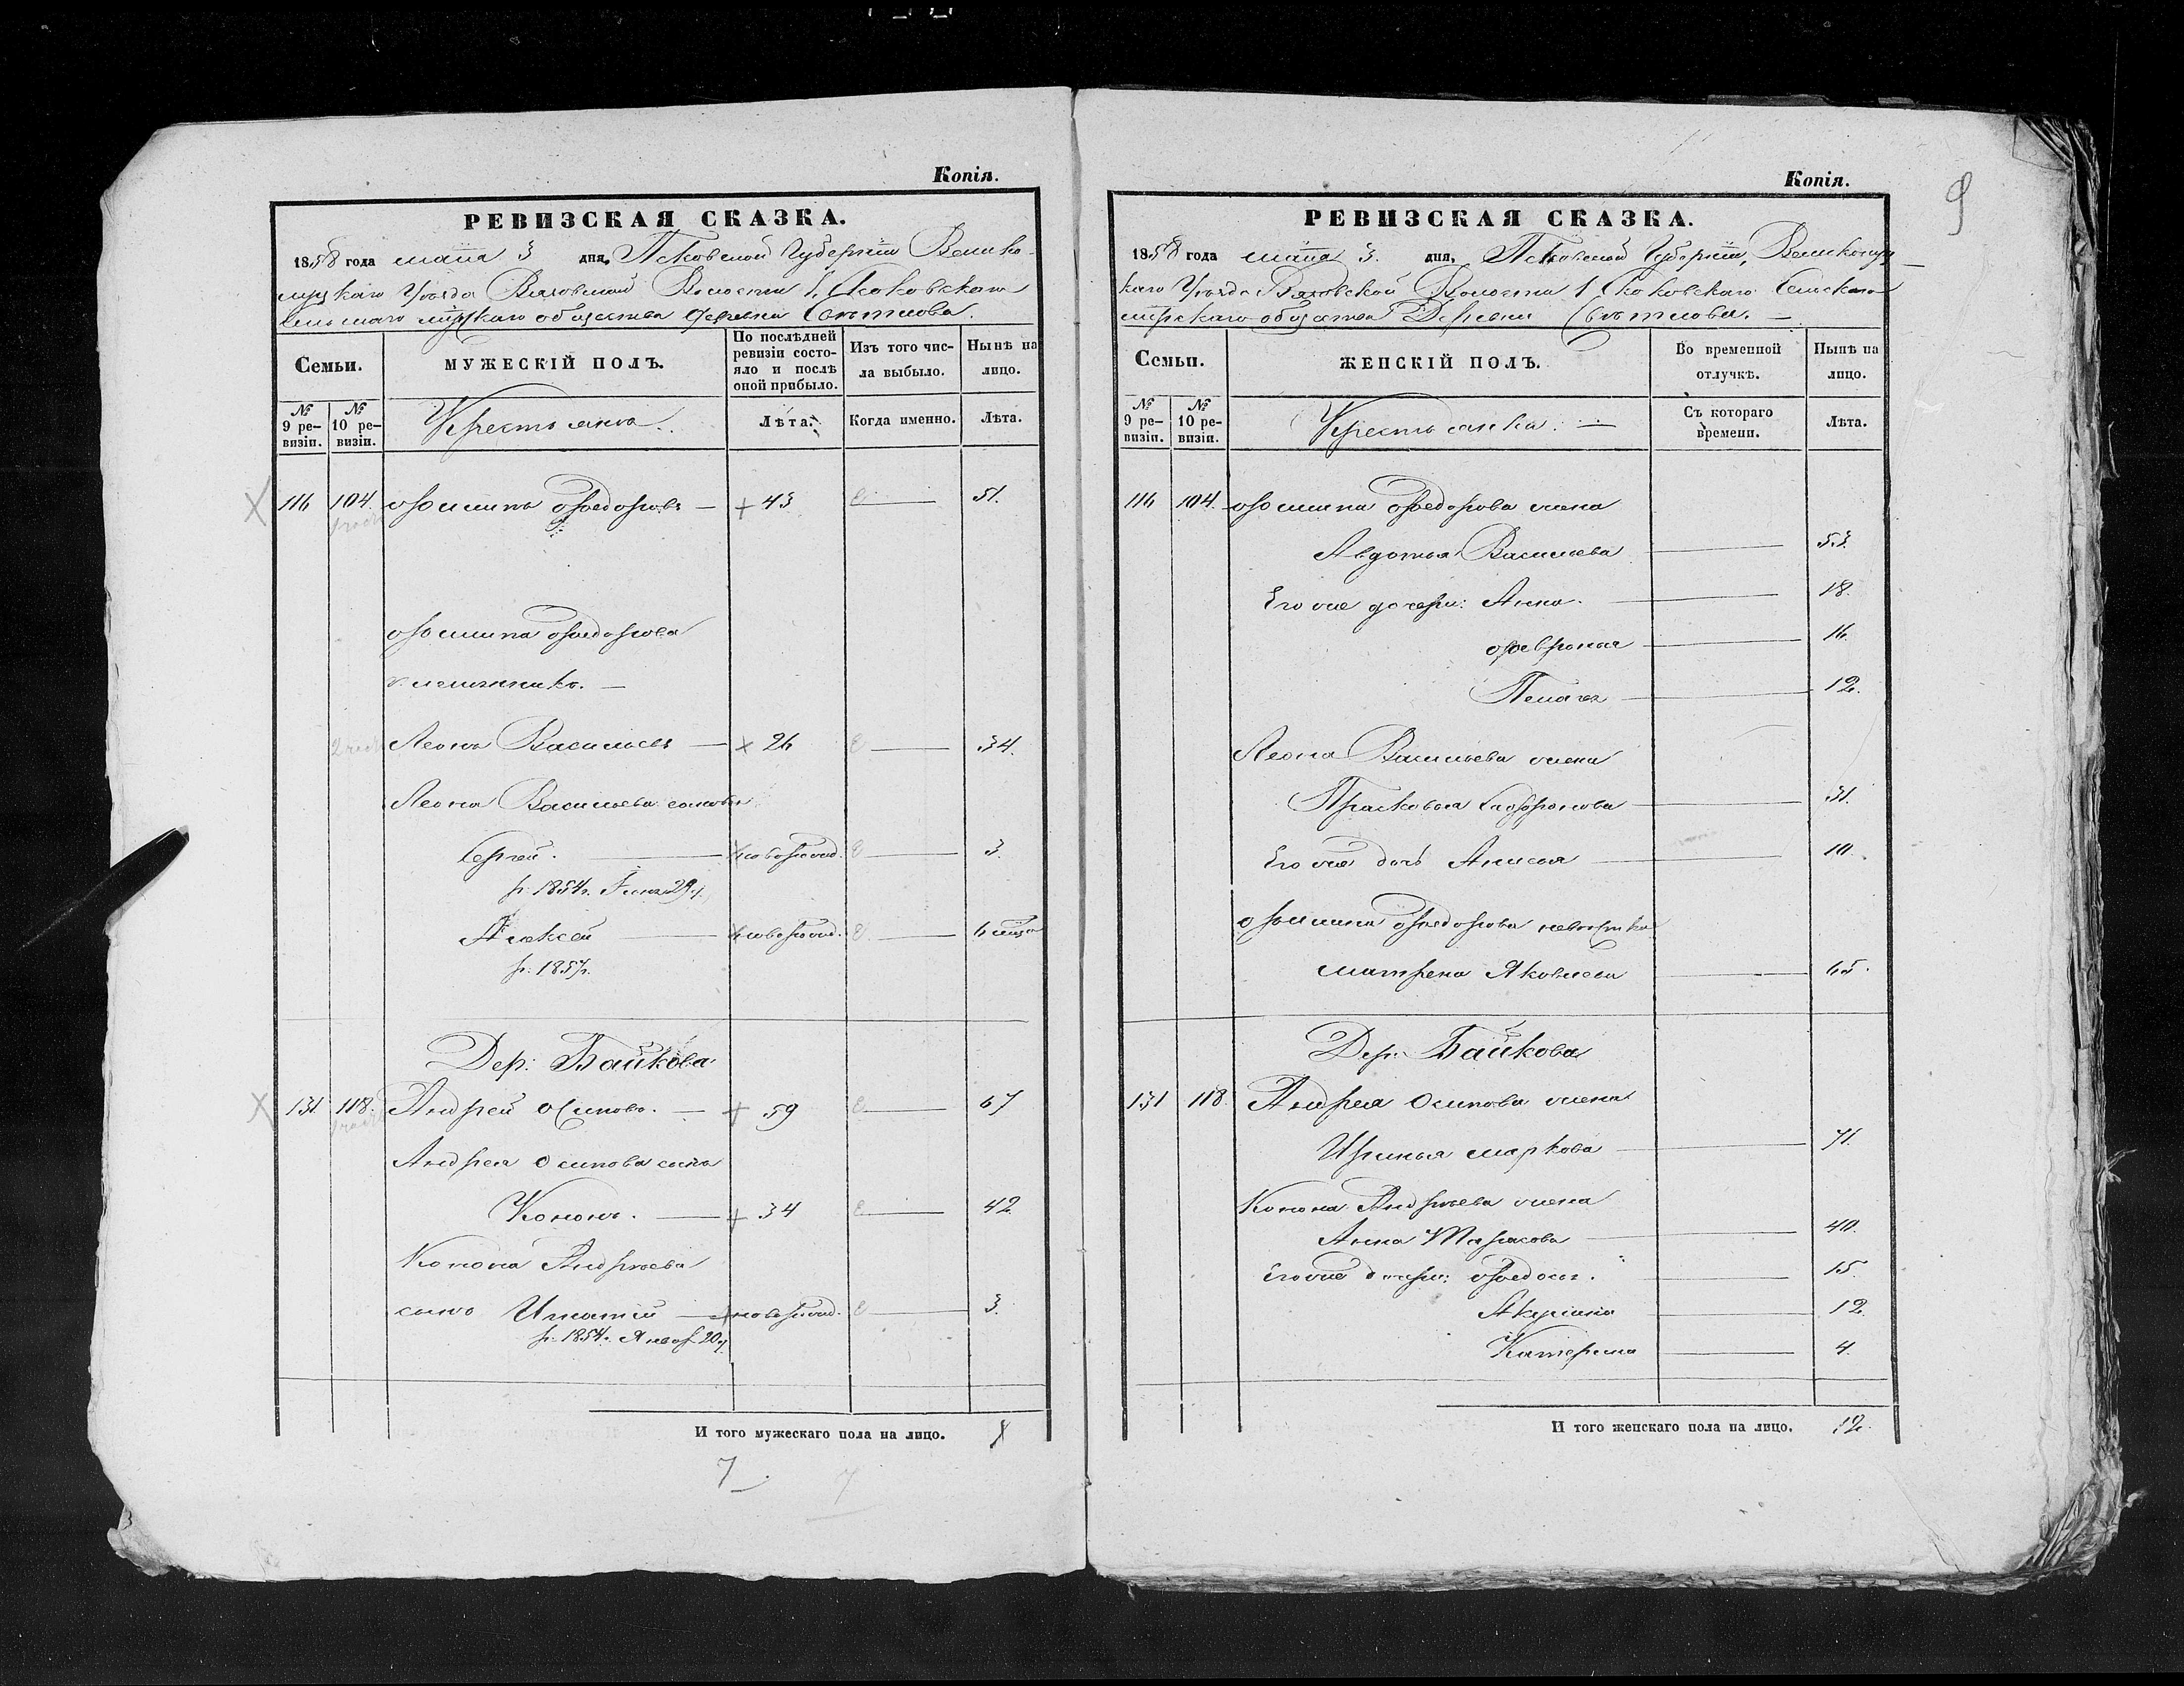 Копія.
РЕВИЗСКАЯ СКАЗКА.
1858 года маия 3 дня, Псковской Губерніи Велико-
луцкаго Уѣзда Вязовской Волости 1, Скоковскаго
Сельскаго мірскаго общества деревни Свѣтлова.
Семьи.
МУЖЕСКІЙ ПОЛЪ.
По послѣдней ревизіи состо-
яло и послѣ оной прибыло.
Изъ того чис-
ла выбыло.
Нынѣ на
лицо.
№ 9 ре-
визіи.
№ 10 ре-
визіи.
Крестьяне.
Лѣта.
Когда именно.
Лѣта.
116 104. Филипъ Федоровъ — 43 51.
Филипа Федорова
племянникъ. —
Леонъ Васильевъ — 26 34.
Леона Васильева сыновья
Сергей. новорожд. 3.
р. 1854г. 29
Алексей новорожд. 6 мѣся
р. 1857г.
Дер: Байкова
131 118. Андрей Осиповъ. — 59 67
Андрея Осипова сынъ
Кононъ. — 34 42
Конона Андреева
сынъ Игнатій новорожд. 3.
р. 1854г. Январ. 20
И того мужескаго пола на лицо.
7
7
Копія.
9
РЕВИЗСКАЯ СКАЗКА.
1858 года маия 3. дня, Псковской Губерніи, Великолуц
каго Уѣзда Вязовской Волости 1 Скоковскаго Сельскаго
мірскаго общества Деревни Свѣтлова. —
Семьи.
ЖЕНСКІЙ ПОЛЪ.
Во временной
отлучкѣ.
Нынѣ на
лицо.
№ 9 ре-
визіи.
№ 10 ре-
визіи.
Крестьянки. —
Съ котораго
времени.
Лѣта.
116 104. Филипа Федорова жена
Авдотья Васильева 53.
Его же дочери: Анна. 18.
Февронья 16.
Пелагея 12.
Леона Васильева жена
Прасковья Софронова 31.
Его же дочь Анисья 10.
Филипа Федорова невѣстка
Матрена Яковлева 65.
Дер: Байкова
131 118 Андрея Осипова жена
Иринья Маркова 71.
Конона Андреева жена
Анна Тарасова 40.
Его же дочери: Федосья. 15.
Акулина 12.
Катерина 4.
И того женскаго пола на лицо. 12.